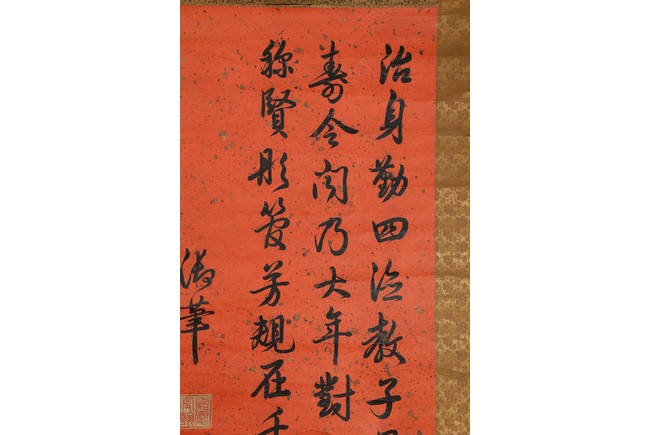 治身勤四德教子
壽令聞乃大年對
稱賢彤管芳規在千
御筆